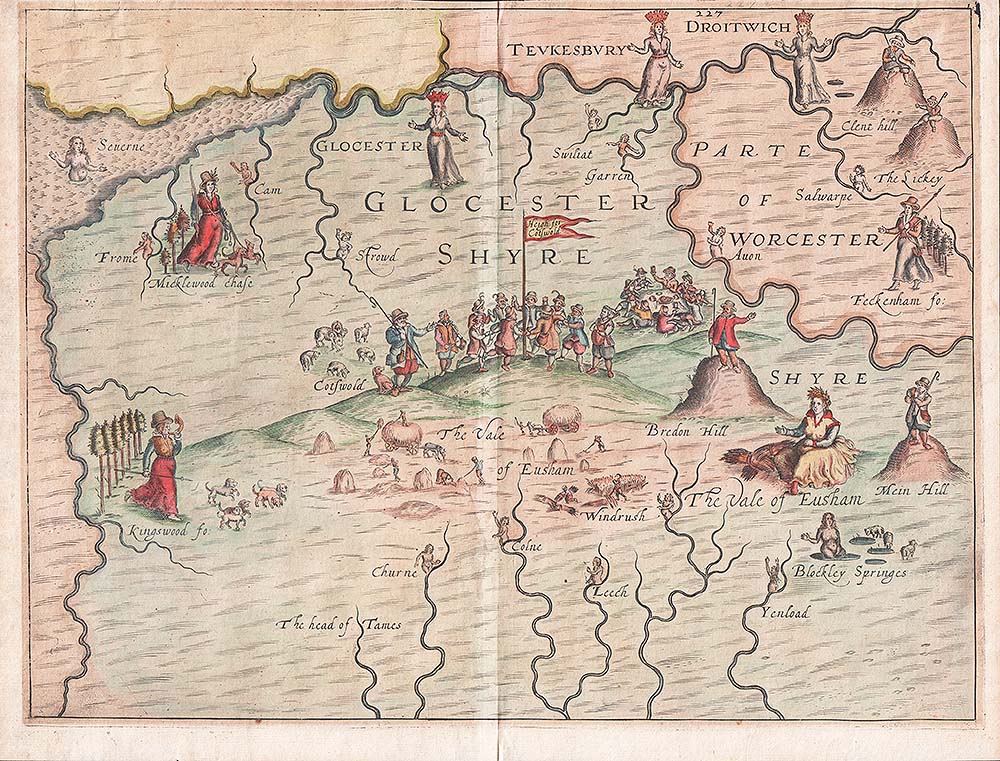 227
DROITWICH
TEVKESBVRY
Clent hill
GLOCESTER
Seuerne
Swiliat
PARTE
Garren
The Lickey
Cam
OF
Salwarpe
GLOCESTER
Heigh for
Cotswold
WORCESTER
Auon
Frome
Strowd
SHYRE
Micklewood chase
Feckenham fo:
SHYRE
Cotswold
Bredon Hill
The Vale
of Eusham
Mein Hill
The Vale of Eusham
Windrush
Kingswood fo
Colne
Churne
Blockley Springes
Leech
Yenload
The head of Tames